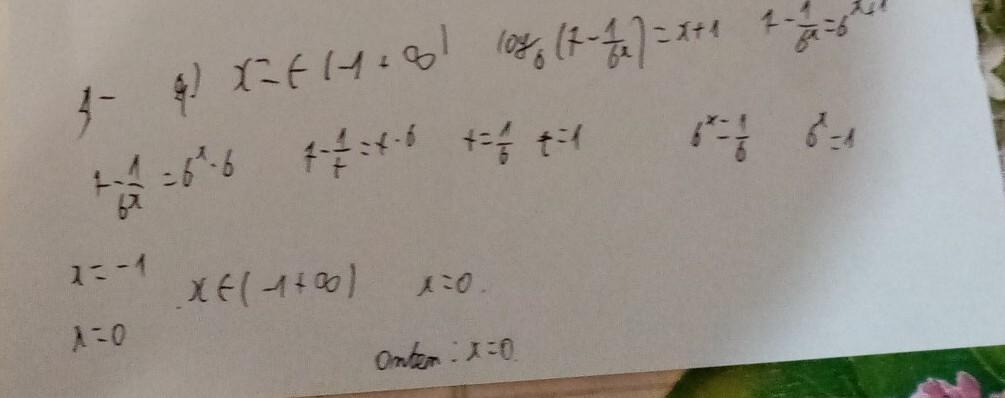 3- 4) x=∈(-1+∞) log₆(7-1/6ˣ)=x+1 7-1/6ˣ=6ˣ⁺¹
7-1/6ˣ=6ˣ·6 7-1/t=t·6 t=1/6 t=1 6ˣ=1/6 6ˣ=1
x=-1 x∈(-1+∞) x=0.
x=0
Ответ: x=0.